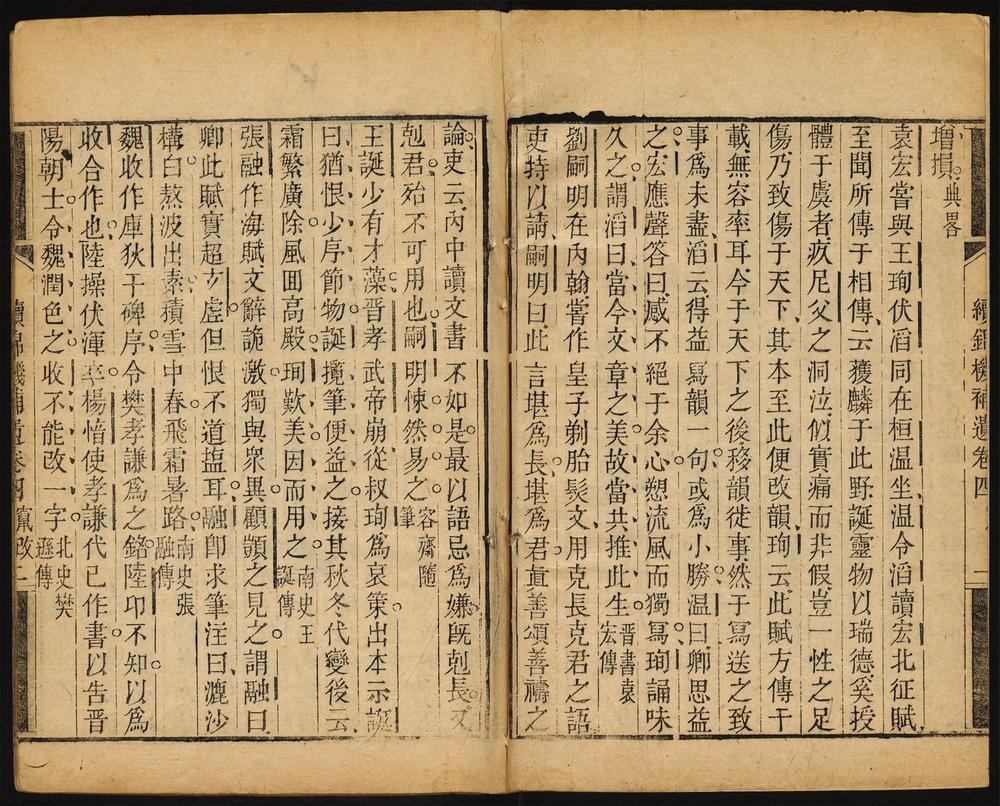 增損典畧
袁宏嘗與王珣伏滔同在桓温坐温令滔讀宏北征賦
至聞所傳于相傳云獲麟于此野誕靈物以瑞德奚授
體于虞者疚尼父之洞泣似實痛而非假豈一性之足
傷乃致傷于天下其本至此便改韻珣云此賦方傳千
載無容率耳今于天下之後移韻徙事然于寫送之致
事爲未盡滔云得益寫韻一句或爲小勝温曰卿思益
之宏應聲答曰感不絕于余心愬流風而獨寫珣誦味
久之謂滔曰當今文章之美故當共推此生晉書袁宏傳
劉嗣明在內翰嘗作皇子剃胎髮文用克長克君之語
吏持以請嗣明曰此言堪爲長堪爲君眞善頌善禱之
續錦機補遺卷四
論吏云內中讀文書不如是最以語忌爲嫌旣剋長又
剋君殆不可用也嗣明悚然易之容齋隨筆
王誕少有才藻晉孝武帝崩從叔珣爲哀策出本示誕
曰猶恨少序節物誕攬筆便益之接其秋冬代變後云
霜繁廣除風囬高殿珣歎美因而用之南史王誕傳
張融作海賦文辭詭激獨與衆異顧顗之見之謂融曰
卿此賦實超𤣥虛但恨不道塩耳融卽求筆注曰漉沙
構白熬波出素積雪中春飛霜暑路南史張融傳
魏收作庫狄干碑序令樊孝謙爲之銘陸卬不知以爲
收合作也陸操伏渾卒楊愔使孝謙代已作書以告晉
陽朝士令魏潤色之收不能改一字北史樊遜傳
續錦機補遺卷四 竄改 二